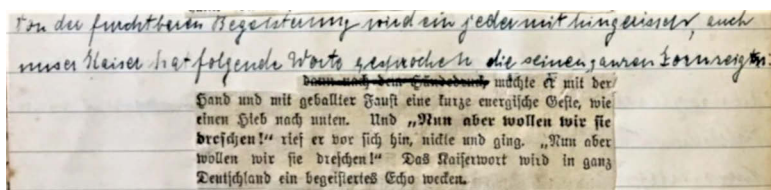 Von der furchtbaren Begeisterung wird ein jeder mit hingerissen, auch
unser Kaiser hat folgende Worte gesprochen die seinen ganzen Zorn zeigten.
dann nach dem Händedruck machte er mit der
Hand und mit geballter Faust eine kurze energische Geste, wie
einen Hieb nach unten. Und „Nun aber wollen wir sie
dreschen!“ rief er vor sich hin, nickte und ging. „Nun aber
wollen wir sie dreschen!“ Das Kaiserwort wird in ganz
Deutschland ein begeistertes Echo wecken.